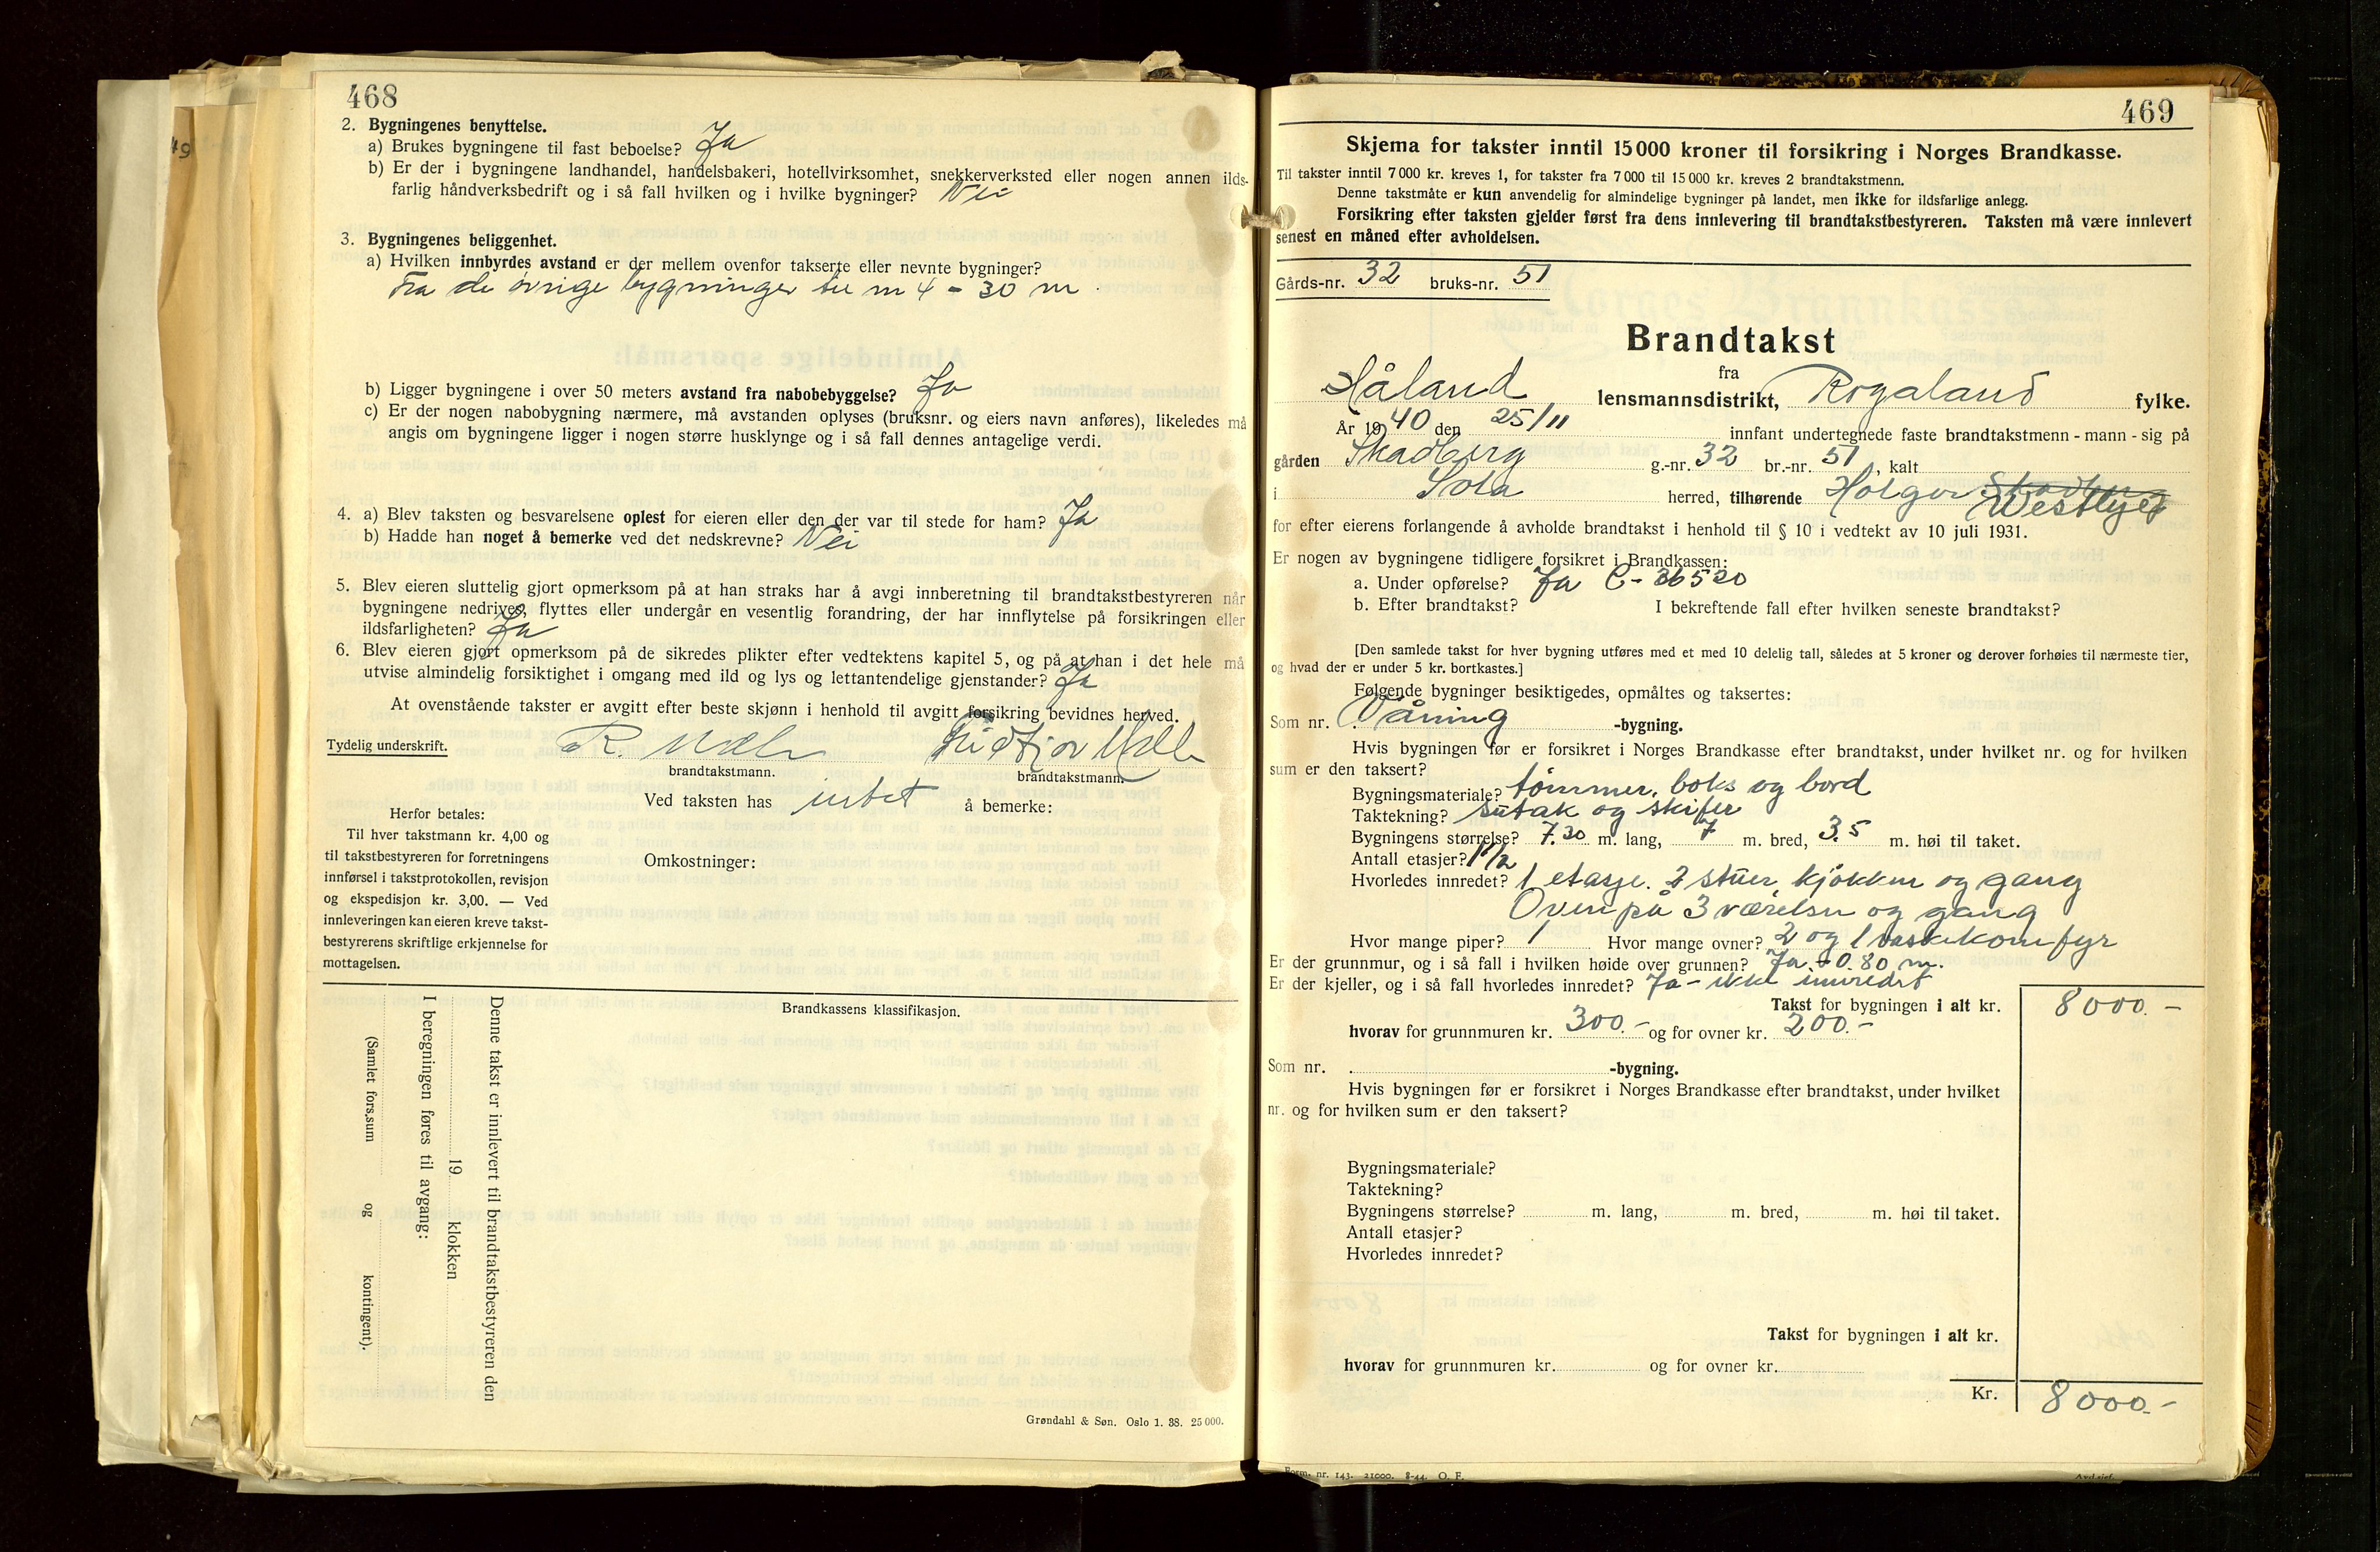 468
2. Bygningenes benyttelse.
a) Brukes bygningene til fast beboelse? Ja
b) Er der i bygningene landhandel, handelsbakeri, hotellvirksomhet, snekkerverksted eller nogen annen ilds-
farlig håndverksbedrift og i så fall hvilken og i hvilke bygninger? Nei
3. Bygningenes beliggenhet.
a) Hvilken innbyrdes avstand er der mellem ovenfor takserte eller nevnte bygninger?
Fra de øvrige bygninger til m 4 - 30 m
b) Ligger bygningene i over 50 meters avstand fra nabobebyggelse? Ja
c) Er der nogen nabobygning nærmere, må avstanden oplyses (bruksnr. og eiers navn anføres), likeledes må
angis om bygningene ligger i nogen større husklynge og i så fall dennes antagelige verdi.
4. a) Blev taksten og besvarelsene oplest for eieren eller den der var til stede for ham? Ja
b) Hadde han noget å bemerke ved det nedskrevne? Nei
5. Blev eieren sluttelig gjort opmerksom på at han straks har å avgi innberetning til brandtakstbestyreren når
bygningene nedrives, flyttes eller undergår en vesentlig forandring, der har innflytelse på forsikringen eller
ildsfarligheten? Ja
6. Blev eieren gjort opmerksom på de sikredes plikter efter vedtektens kapitel 5, og på at han i det hele må
utvise almindelig forsiktighet i omgang med ild og lys og lettantendelige gjenstander? Ja
At ovenstående takster er avgitt efter beste skjønn i henhold til avgitt forsikring bevidnes herved.
Tydelig underskrift. R.
brandtakstmann. brandtakstmann.
Ved taksten has intet å bemerke:
Herfor betales:
Til hver takstmann kr. 4,00 og
til takstbestyreren for forretningens
innførsel i takstprotokollen, revisjon
og ekspedisjon kr. 3,00. — Ved
innleveringen kan eieren kreve takst-
bestyrerens skriftlige erkjennelse for
mottagelsen.
Omkostninger:
Brandkassens klassifikasjon.
Denne takst er innlevert til brandtakstbestyreren den
19 klokken
I beregningen føres til avgang:
(Samlet fors.sum og kontingent).
Grøndahl & Søn. Oslo 1. 38. 25 000.
469
Skjema for takster inntil 15 000 kroner til forsikring i Norges Brandkasse.
Til takster inntil 7 000 kr. kreves 1, for takster fra 7 000 til 15 000 kr. kreves 2 brandtakstmenn.
Denne takstmåte er kun anvendelig for almindelige bygninger på landet, men ikke for ildsfarlige anlegg.
Forsikring efter taksten gjelder først fra dens innlevering til brandtakstbestyreren. Taksten må være innlevert
senest en måned efter avholdelsen.
Gårds-nr. 32 bruks-nr. 51
Brandtakst
fra
Håland lensmannsdistrikt, Rogaland fylke.
År 1940 den 25/11 innfant undertegnede faste brandtakstmenn - mann - sig på
gården Skadberg g.-nr. 32 br.-nr. 51, kalt
i Sola herred, tilhørende Holger Skadberg Westlye
for efter eierens forlangende å avholde brandtakst i henhold til § 10 i vedtekt av 10 juli 1931.
Er nogen av bygningene tidligere forsikret i Brandkassen:
a. Under opførelse? Ja C-36520
b. Efter brandtakst? I bekreftende fall efter hvilken seneste brandtakst?
[Den samlede takst for hver bygning utføres med et med 10 delelig tall, således at 5 kroner og derover forhøies til nærmeste tier,
og hvad der er under 5 kr. bortkastes.]
Følgende bygninger besiktigedes, opmåltes og taksertes:
Som nr. Våning -bygning.
Hvis bygningen før er forsikret i Norges Brandkasse efter brandtakst, under hvilket nr. og for hvilken
sum er den taksert?
Bygningsmateriale? tømmer, boks og bord
Taktekning? sutak og skifer
Bygningens størrelse? 7.30 m. lang, 7 m. bred, 3.5 m. høi til taket.
Antall etasjer? 1 1/2
Hvorledes innredet? 1 etasje. 2 stuer, kjøkken og gang
Oven på 3 værelser og gang
Hvor mange piper? 1 Hvor mange ovner? 2 og 1 vaskekomfyr
Er der grunnmur, og i så fall i hvilken høide over grunnen? Ja - 0.80 m.
Er der kjeller, og i så fall hvorledes innredet? Ja - ikke innredet
Takst for bygningen i alt kr. 8000.-
hvorav for grunnmuren kr. 300.- og for ovner kr. 200.-
Som nr. -bygning.
Hvis bygningen før er forsikret i Norges Brandkasse efter brandtakst, under hvilket
nr. og for hvilken sum er den taksert?
Bygningsmateriale?
Taktekning?
Bygningens størrelse? m. lang, m. bred, m. høi til taket.
Antall etasjer?
Hvorledes innredet?
Takst for bygningen i alt kr.
hvorav for grunnmuren kr. og for ovner kr.
Kr. 8000.-
Form. nr. 143. 21000. 8-44. O. F.